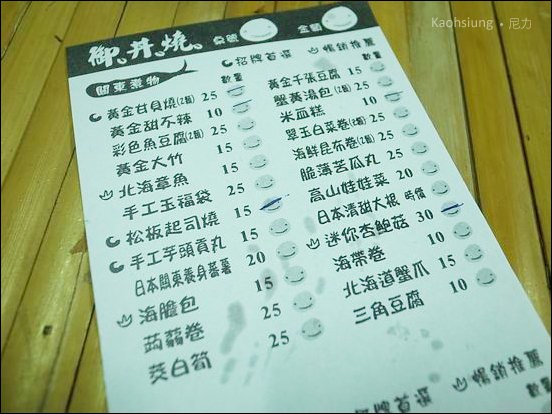 Kaohsiung • 尼力
御。丼。燒。
關東煮物
招牌首選
暢銷推薦
數量
黃金甘貝燒(2個) 25
黃金甜不辣 15
彩色魚豆腐(2個) 25
黃金大竹 15
北海章魚 15
手工玉福袋 25
松板起司燒 15
手工芋頭貢丸 15
日本關東養身蕃薯 20
海膽包 15
蒟蒻卷 25
茭白筍 25
數量
黃金千張豆腐 15
蟹黃湯包(2個) 25
米血糕 10
翠玉白菜卷(2個) 15
海鮮昆布卷(2個) 25
脆薄苦瓜丸 25
高山娃娃菜 20
日本清甜大根 時價
迷你杏鮑菇 30
海帶卷 10
北海道蟹爪 15
三角豆腐 10
招牌首選
暢銷推薦
數量